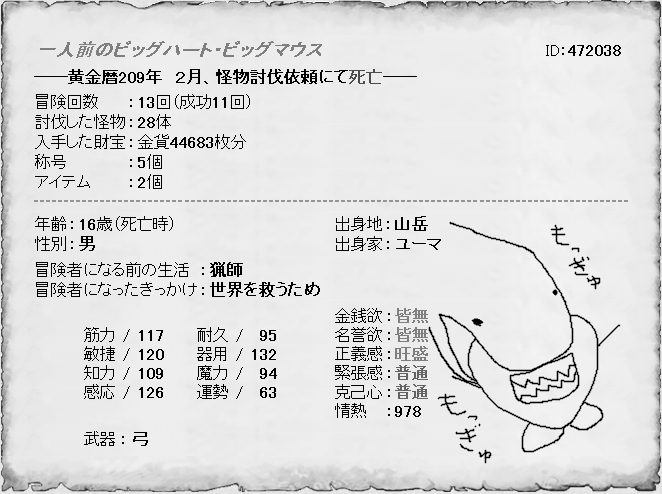 一人前のビッグハート・ビッグマウス
ID：472038
――黄金暦209年　2月、怪物討伐依頼にて死亡――
冒険回数　：13回（成功11回）
討伐した怪物：28体
入手した財宝：金貨44683枚分
称号　　　：5個
アイテム　：2個
年齢：16歳（死亡時）
性別：男
出身地：山岳
出身家：ユーマ
冒険者になる前の生活 ：猟師
冒険者になったきっかけ：世界を救うため
筋力 / 117　耐久 / 95
敏捷 / 120　器用 / 132
知力 / 109　魔力 / 94
感応 / 126　運勢 / 63
武器：弓
金銭欲：皆無
名誉欲：皆無
正義感：旺盛
緊張感：普通
克己心：普通
情熱　：978
もっぎゅ
もっぎゅ